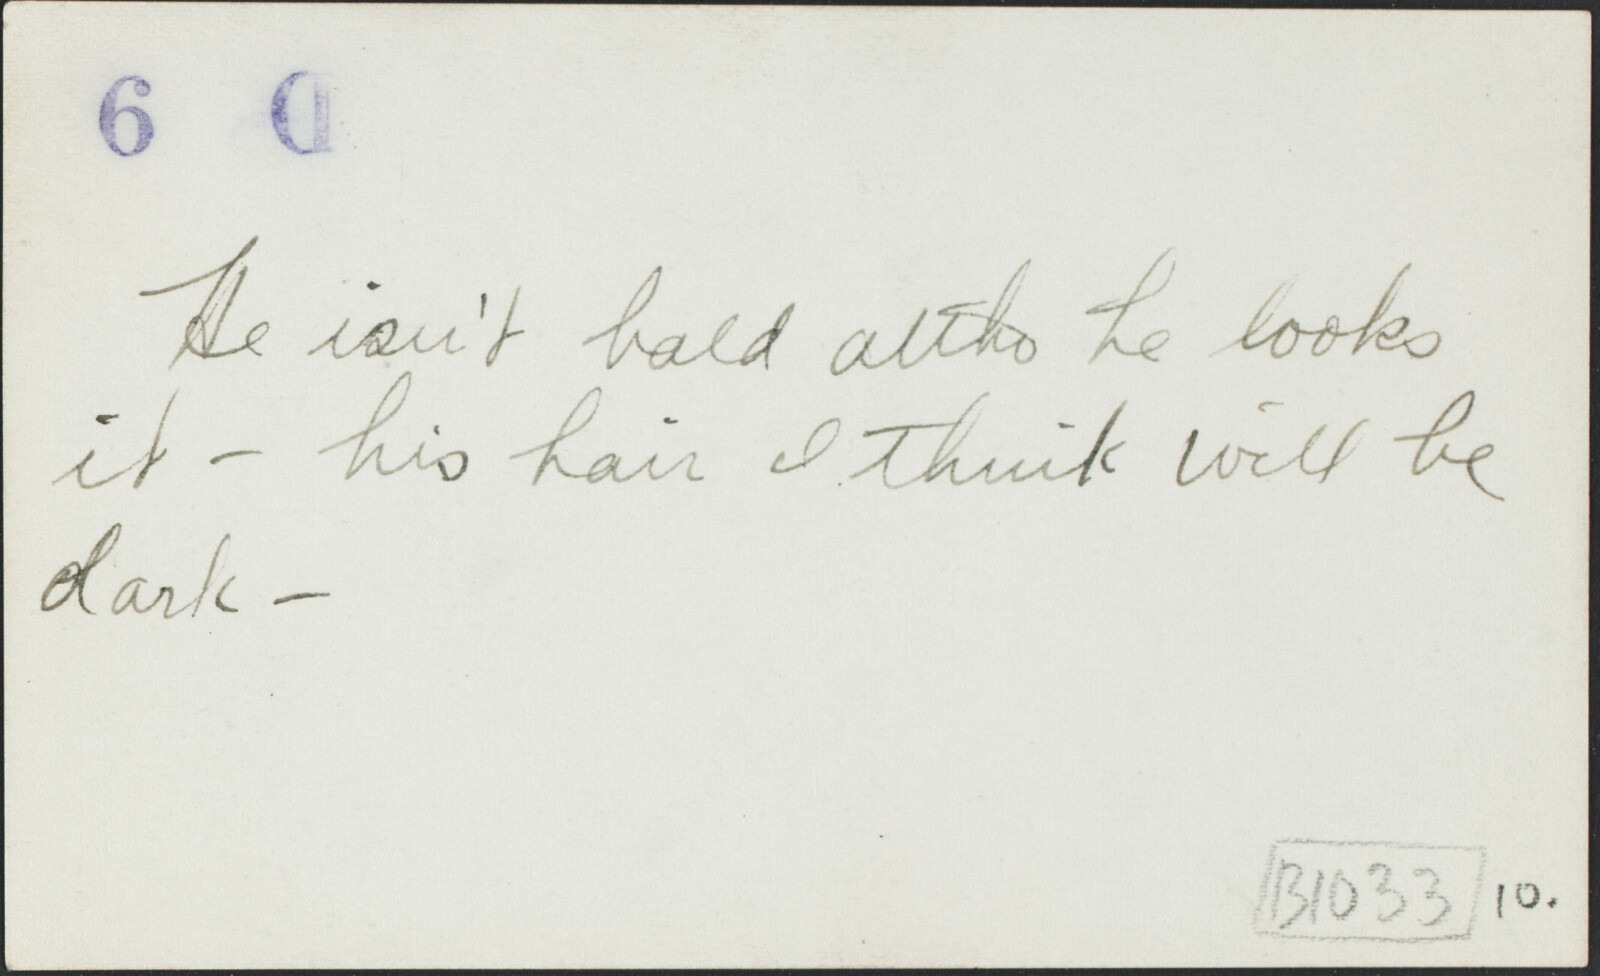 6 D
He isn't bald altho he looks
it - his hair I think will be
dark -
B1033 10.